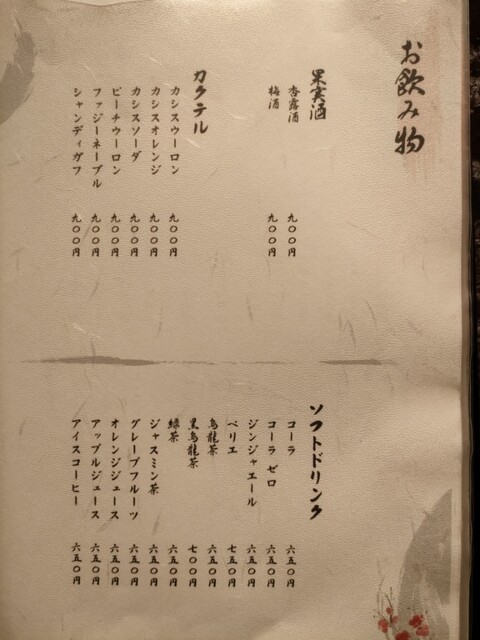 お飲み物
果実酒
杏露酒 九〇〇円
梅酒 九〇〇円
カクテル
カシスウーロン 九〇〇円
カシスオレンジ 九〇〇円
カシスソーダ 九〇〇円
ピーチウーロン 九〇〇円
ファジーネーブル 九〇〇円
シャンディガフ 九〇〇円
ソフトドリンク
コーラ 六五〇円
コーラ ゼロ 六五〇円
ジンジャエール 六五〇円
ペリエ 七五〇円
烏龍茶 六五〇円
黒烏龍茶 七〇〇円
緑茶 六五〇円
ジャスミン茶 六五〇円
グレープフルーツ 六五〇円
オレンジジュース 六五〇円
アップルジュース 六五〇円
アイスコーヒー 六五〇円